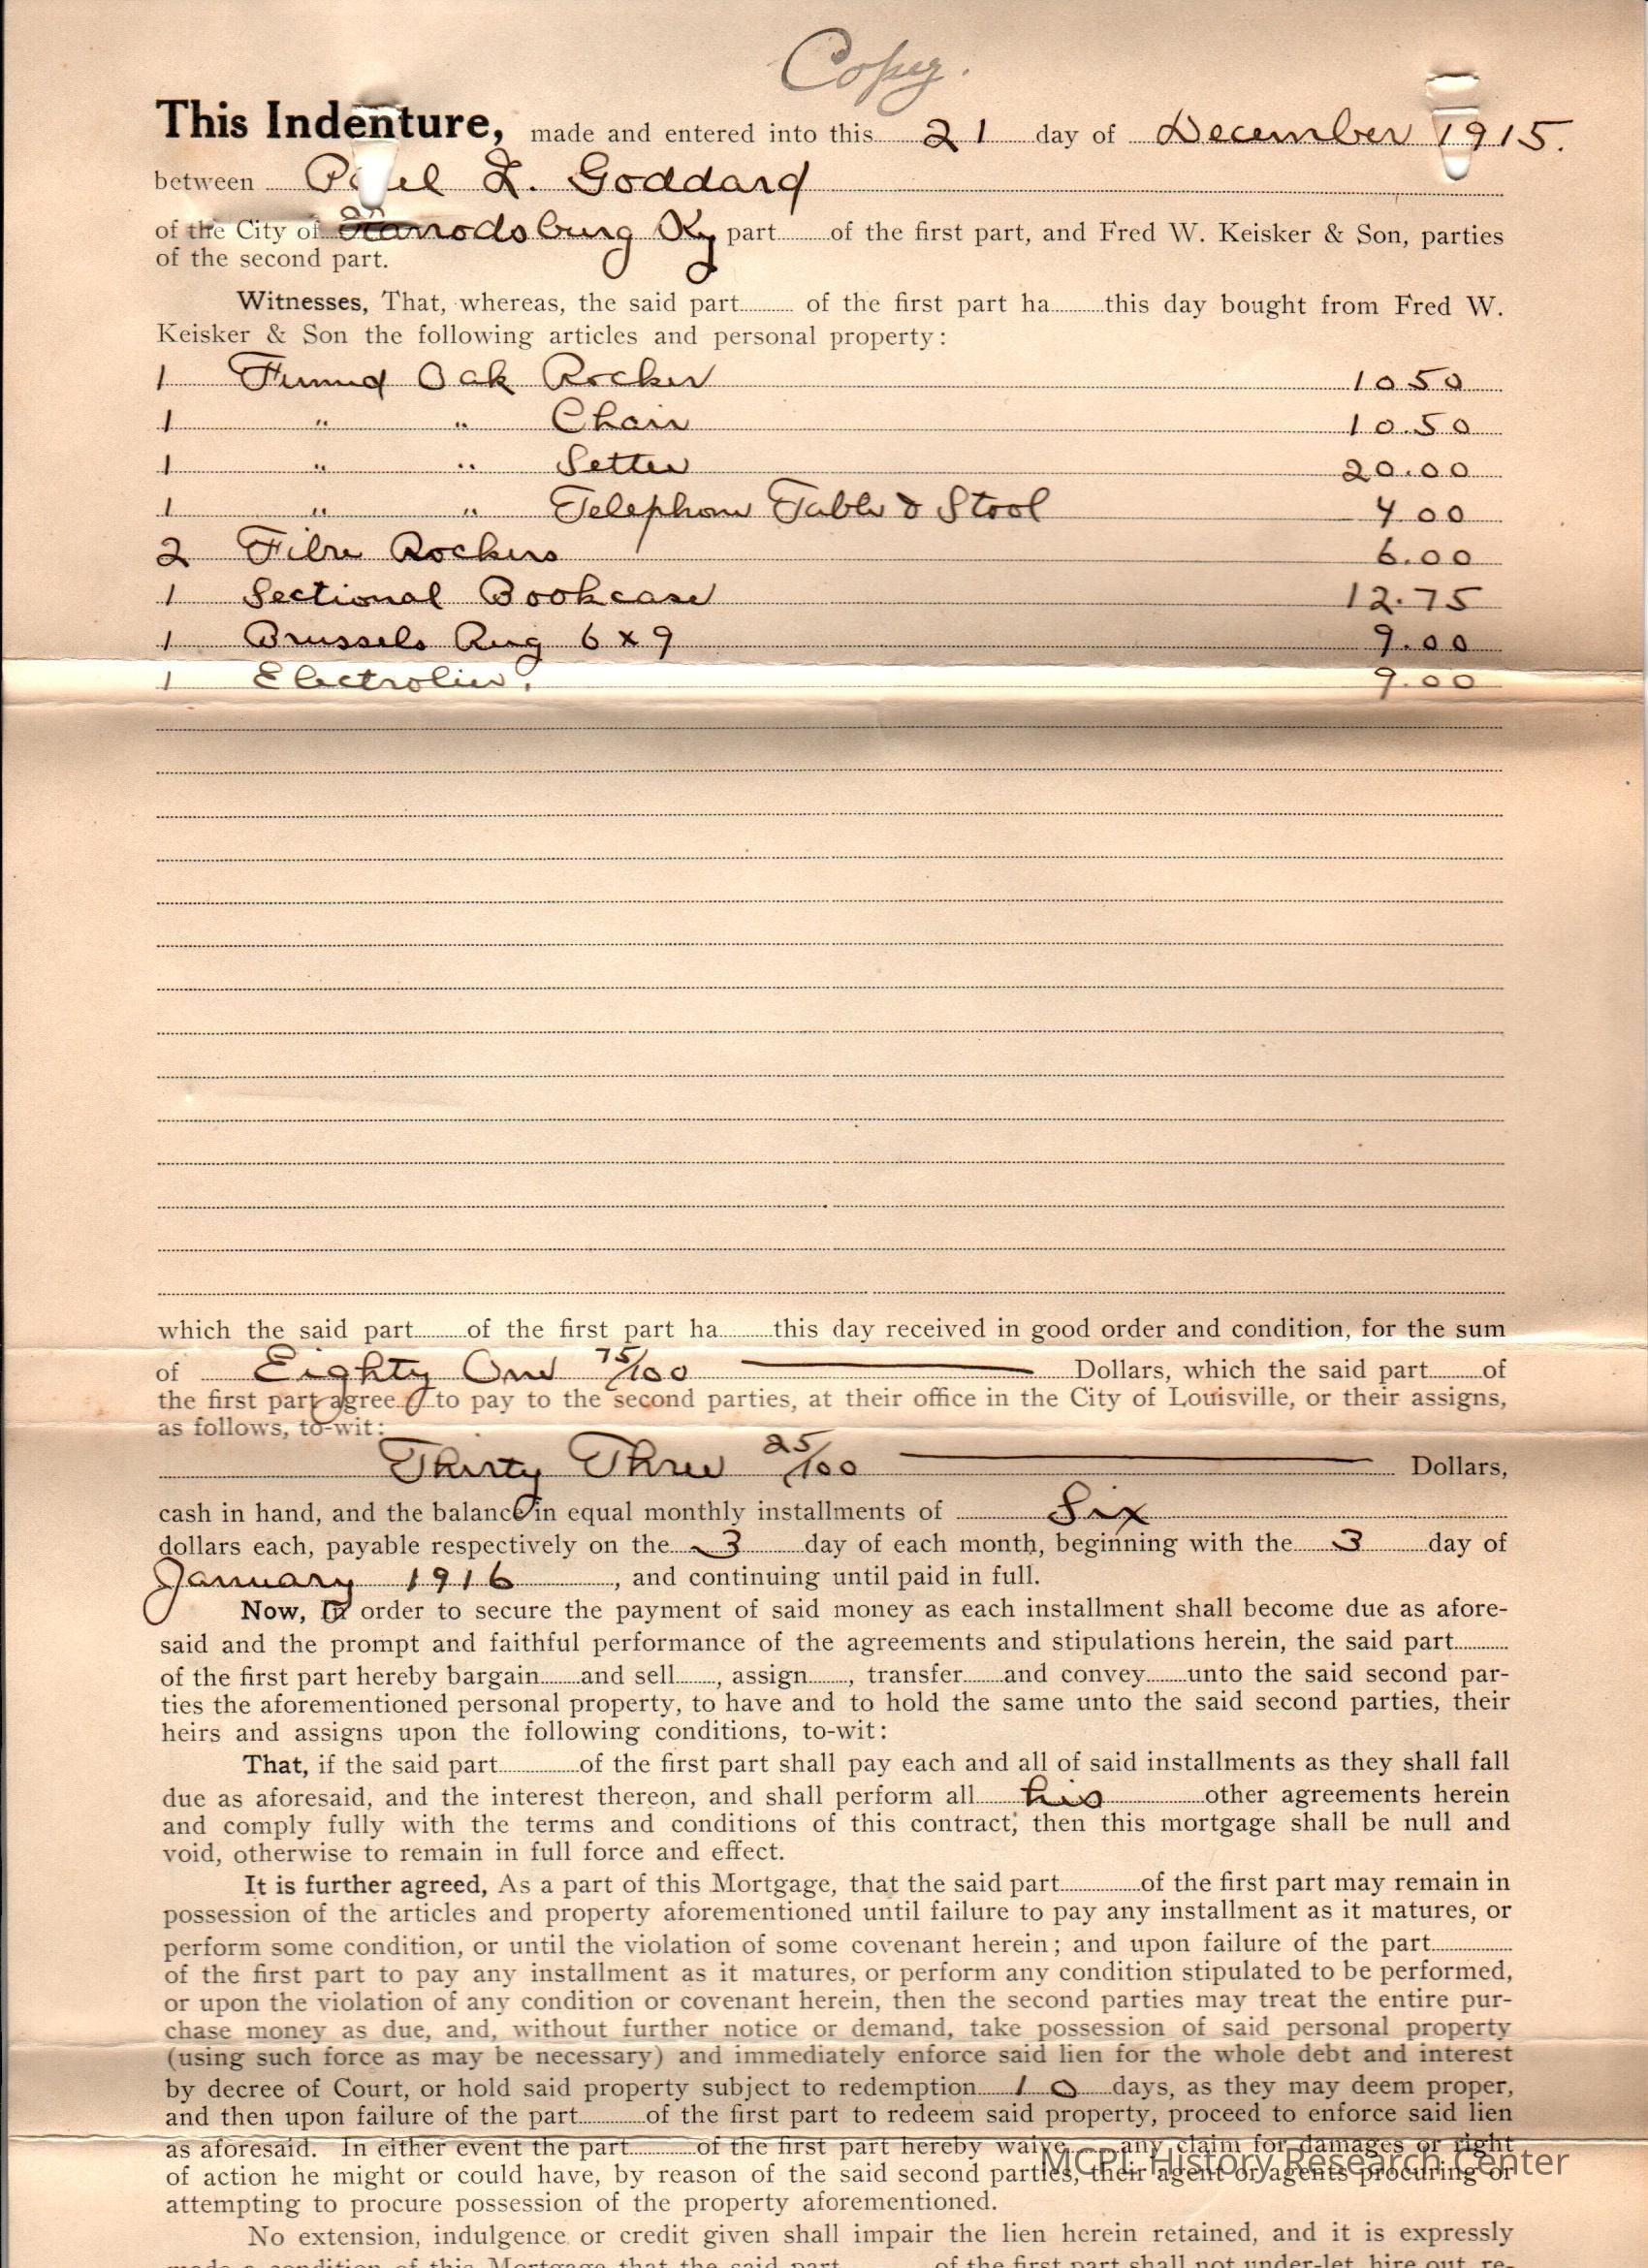 Copy.
This Indenture, made and entered into this 21 day of December 1915.
between L. Goddard
of the City of Harrodsburg Ky part of the first part, and Fred W. Keisker & Son, parties
of the second part.
Witnesses, That, whereas, the said part of the first part ha this day bought from Fred W.
Keisker & Son the following articles and personal property:
1 Fumed Oak Rocker 10.50
1 " " Chair 10.50
1 " " Settee 20.00
1 " " Telephone Table & Stool 4 00
2 Fibre Rockers 6.00
1 Sectional Bookcase 12.75
1 Brussels Rug 6 x 9 9.00
1 Electrolier. 9.00
which the said part of the first part ha this day received in good order and condition, for the sum
of Eighty One 75/100 Dollars, which the said part of
the first part agree to pay to the second parties, at their office in the City of Louisville, or their assigns,
as follows, to-wit:
Thirty Three 25/100 Dollars,
cash in hand, and the balance in equal monthly installments of Six
dollars each, payable respectively on the 3 day of each month, beginning with the 3 day of
January 1916, and continuing until paid in full.
Now, In order to secure the payment of said money as each installment shall become due as afore-
said and the prompt and faithful performance of the agreements and stipulations herein, the said part
of the first part hereby bargain and sell, assign, transfer and convey unto the said second par-
ties the aforementioned personal property, to have and to hold the same unto the said second parties, their
heirs and assigns upon the following conditions, to-wit:
That, if the said part of the first part shall pay each and all of said installments as they shall fall
due as aforesaid, and the interest thereon, and shall perform all his other agreements herein
and comply fully with the terms and conditions of this contract; then this mortgage shall be null and
void, otherwise to remain in full force and effect.
It is further agreed, As a part of this Mortgage, that the said part of the first part may remain in
possession of the articles and property aforementioned until failure to pay any installment as it matures, or
perform some condition, or until the violation of some covenant herein; and upon failure of the part
of the first part to pay any installment as it matures, or perform any condition stipulated to be performed,
or upon the violation of any condition or covenant herein, then the second parties may treat the entire pur-
chase money as due, and, without further notice or demand, take possession of said personal property
(using such force as may be necessary) and immediately enforce said lien for the whole debt and interest
by decree of Court, or hold said property subject to redemption 10 days, as they may deem proper,
and then upon failure of the part of the first part to redeem said property, proceed to enforce said lien
as aforesaid. In either event the part of the first part hereby waive any claim for damages or right
of action he might or could have, by reason of the said second parties, their agent or agents procuring or
MCPL History Research Center
attempting to procure possession of the property aforementioned.
No extension, indulgence or credit given shall impair the lien herein retained, and it is expressly
made a condition of this Mortgage that the said part of the first part shall not under-let, hire out, re-